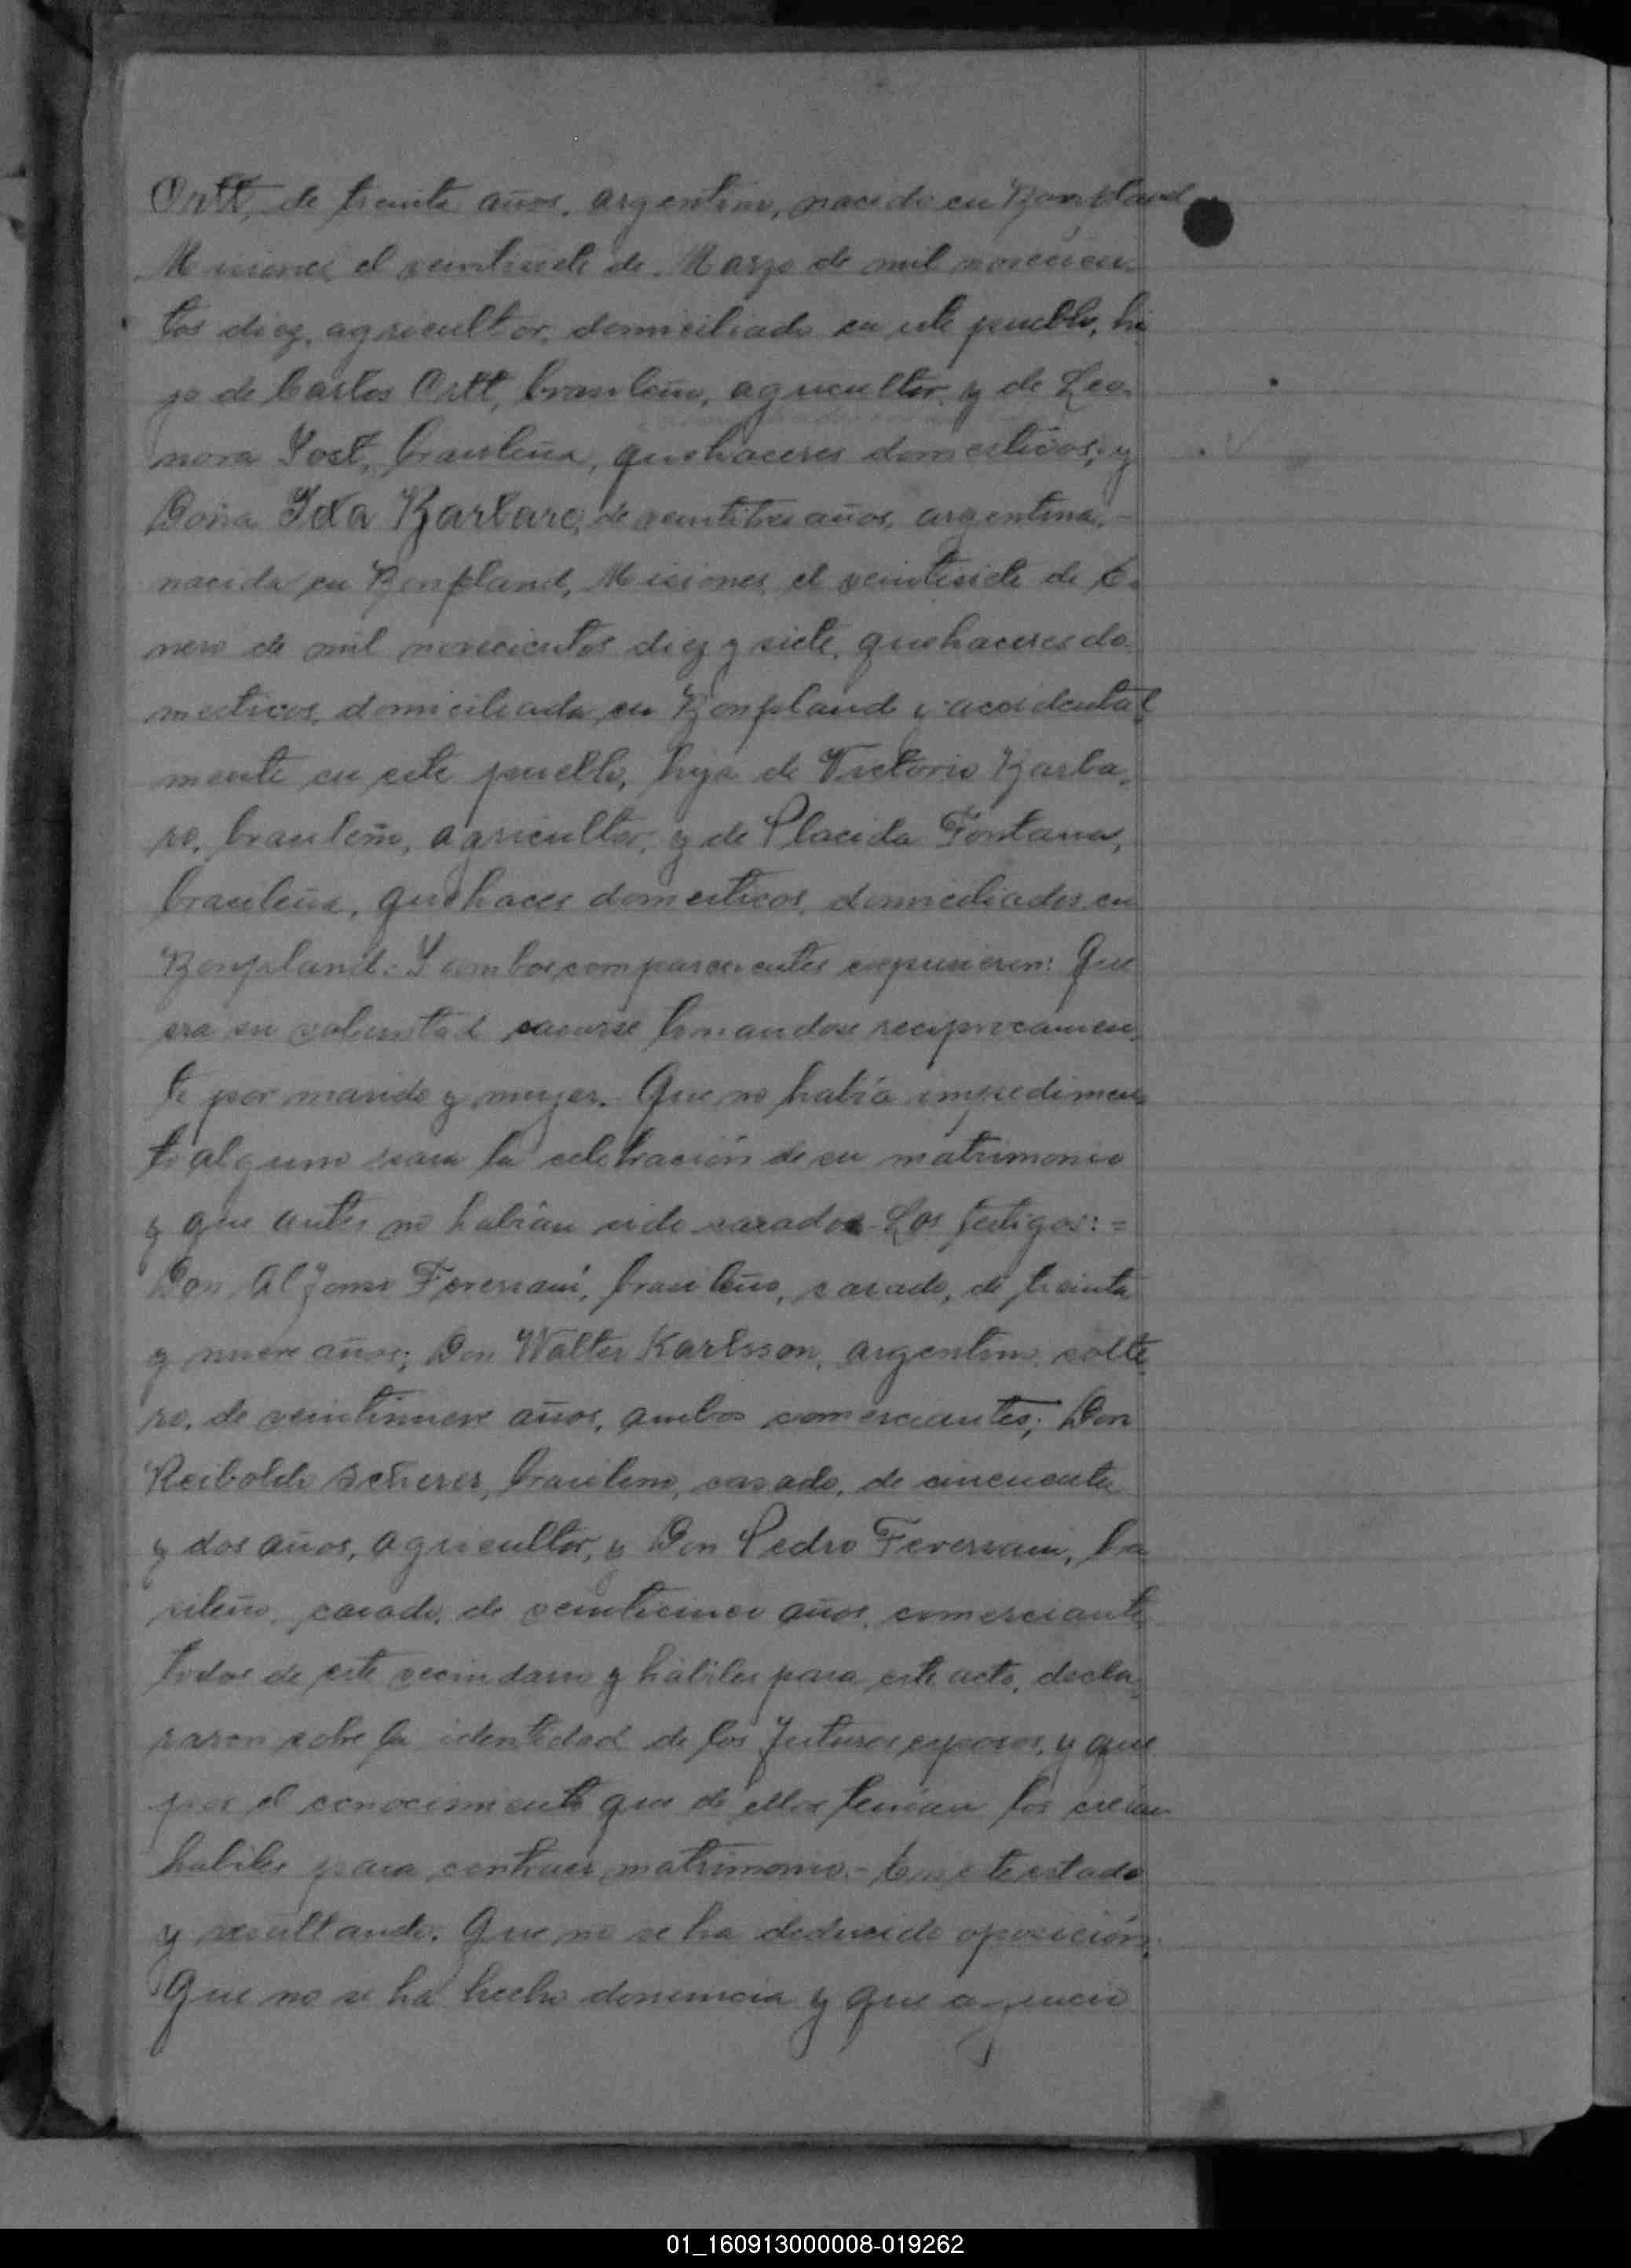 Ortt, de treinta años, argentino, nacido en Bonpland
Misiones, el veintisiete de Marzo de mil novecien-
tos diez, agricultor, domiciliado en este pueblo, hi
jo de Carlos Ortt, brasileño, agricultor, y de Leo-
nora Yost, brasileña, quehaceres domesticos; y
Doña Ida Barbaro, de veintitres años, argentina,-
nacida en Bonpland, Misiones, el veintisiete de E-
nero de mil novecientos diez y siete, quehaceres do-
mesticos, domiciliada en Bonpland y accidental
mente en este pueblo, hija de Victorio Barba-
ro, brasileño, agricultor, y de Placida Fontana,
brasileña, quehaces domesticos, domiciliados en
Bonpland.- Y ambos comparecientes expusieron: Que
era su voluntad casarse tomandose reciprocamen-
te por marido y mujer. Que no había impedimen-
to alguno para la celebración de su matrimonio
y que antes no habían sido casados. Los testigos: =
Don Alfonso Feversani, brasileño, casado, de treinta
y nueve años; Don Walter Karlsson, argentino, solte
ro, de veintinueve años, ambos comerciantes; Don
Reiboldo Scherer, brasileno, casado, de cincuenta
y dos años, agricultor, y Don Pedro Feversani, bra
sileño, casado, de veinticinco años, comerciante
todos de este vecindario y hábiles para este acto, decla-
raron sobre la identidad de los futuros esposos, y que
por el conocimiento que de ellos tenían los creían
habiles para contraer matrimonio.- En este estado
y resultando. Que no se ha deducido oposición,
Que no se ha hecho denuncia y que a juicio
01_160913000008-019262